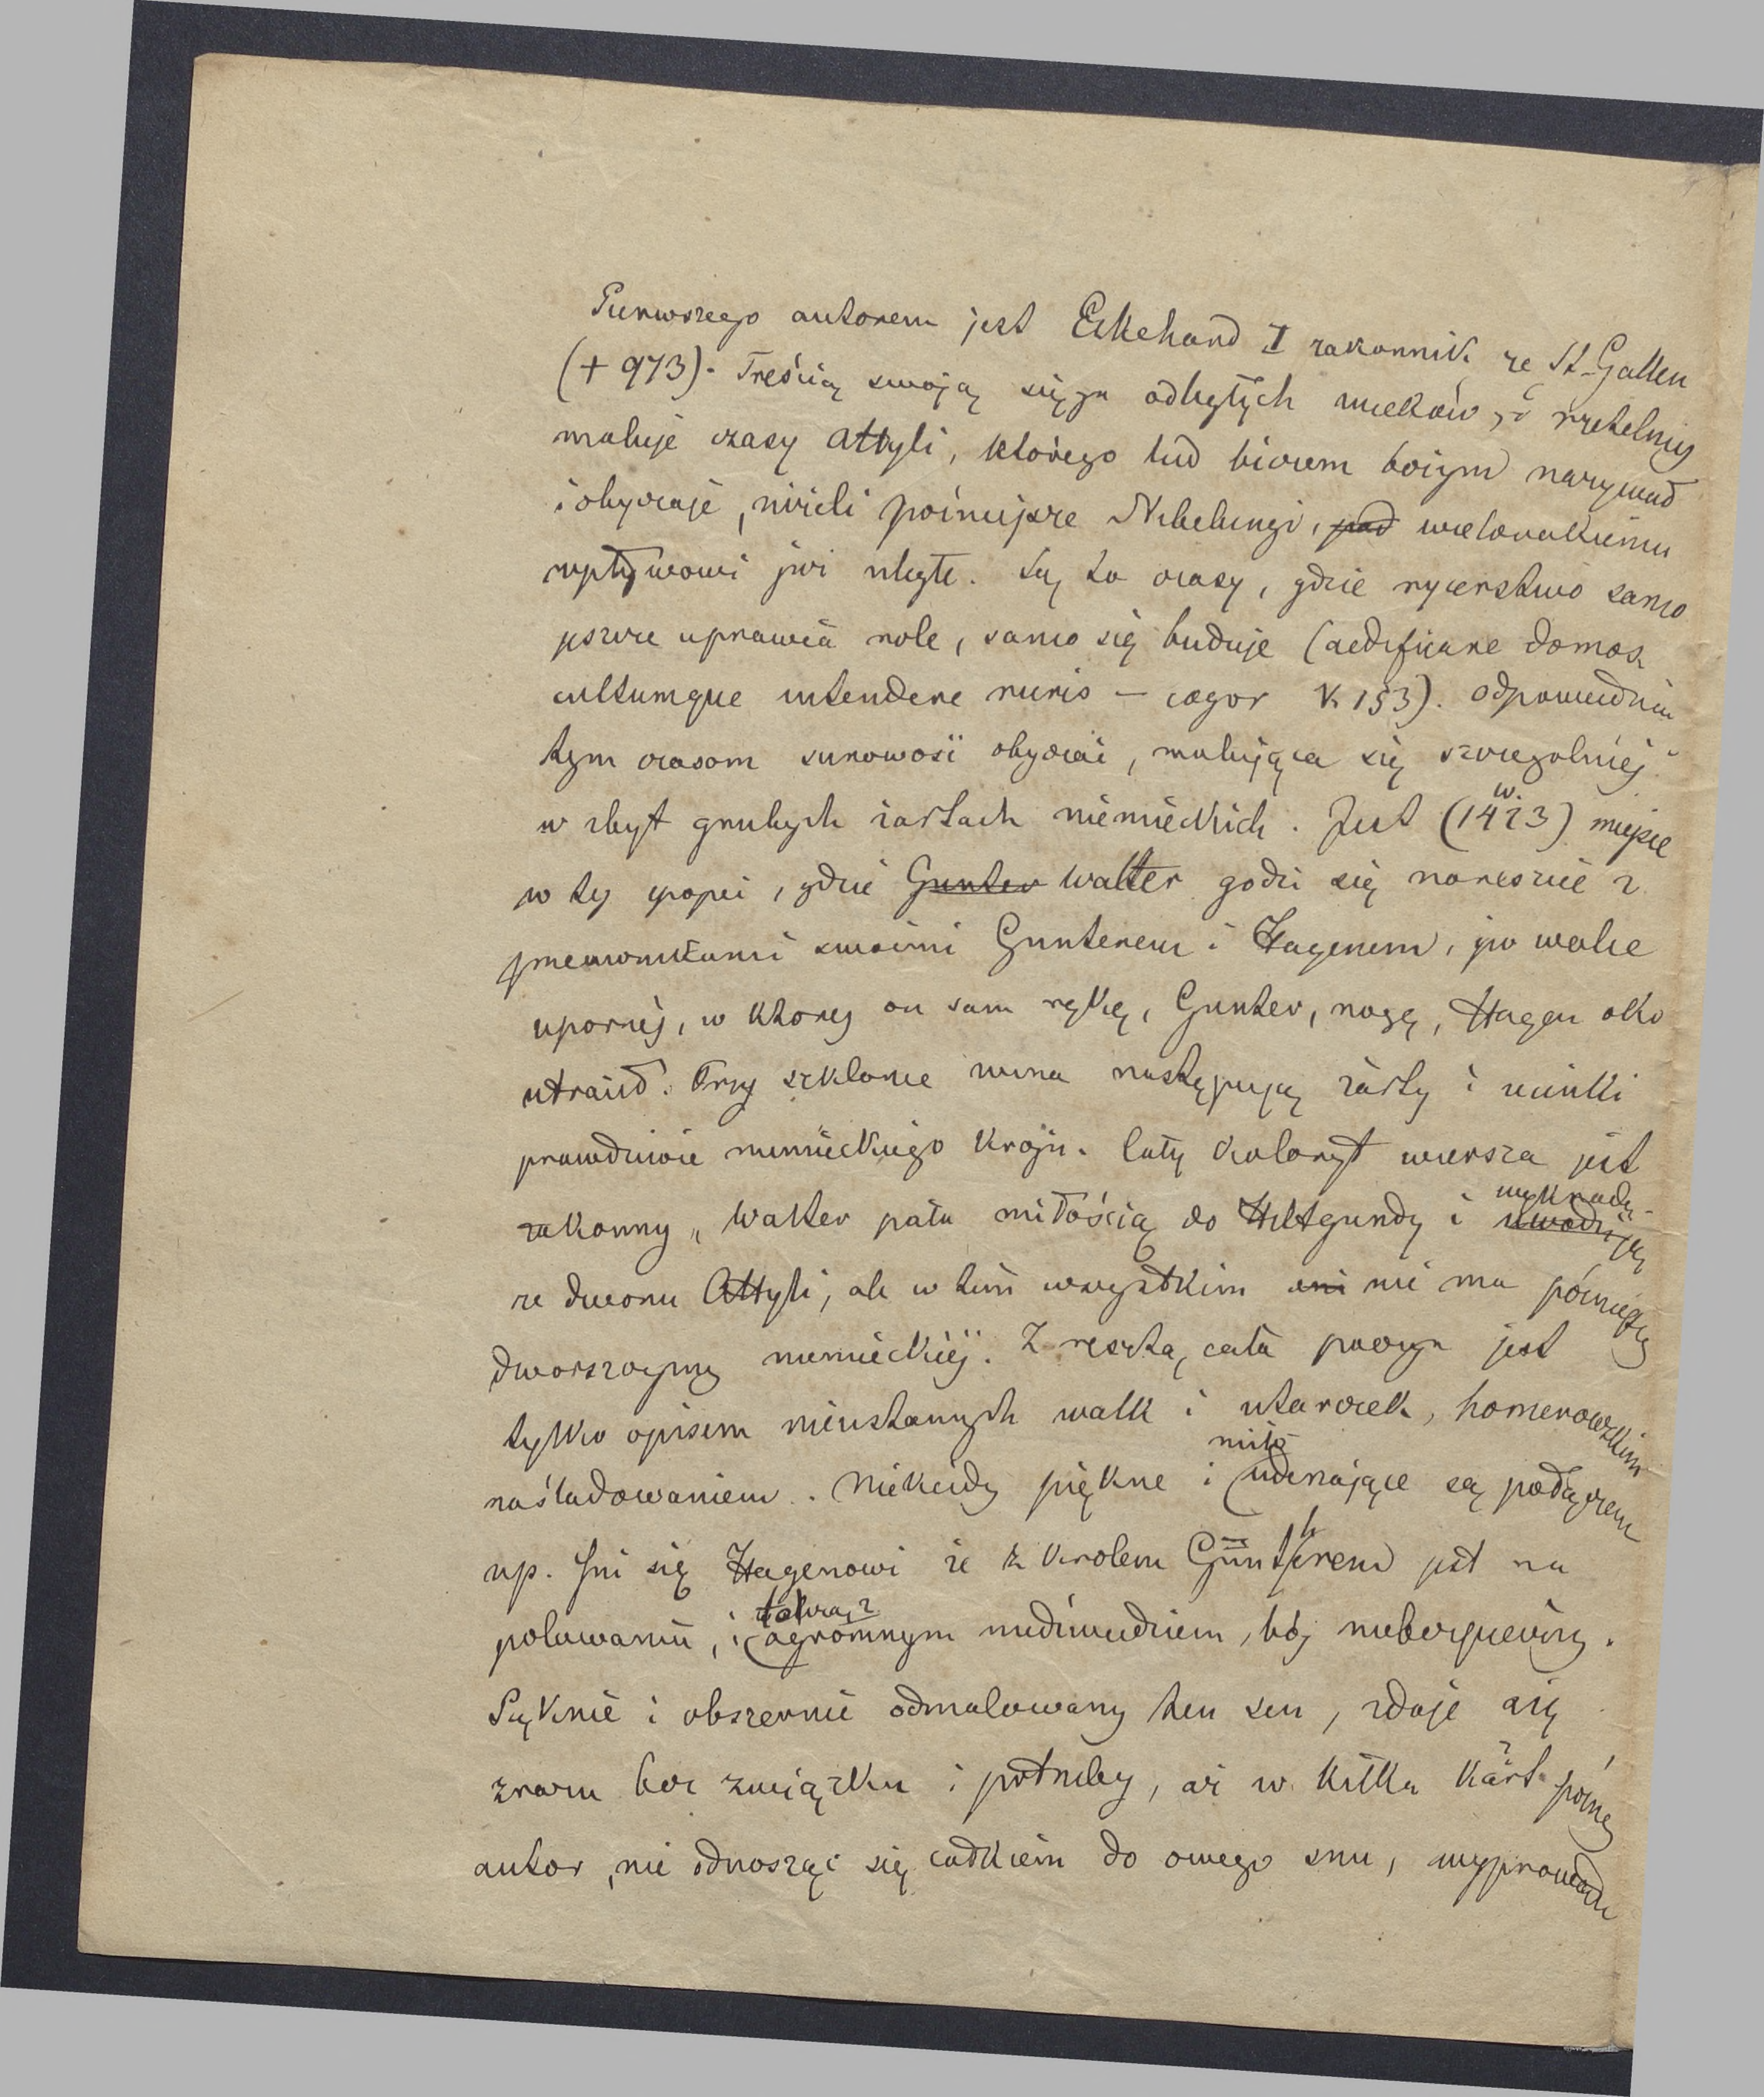 Pierwszego autorem jest Ekkehard I zakonnik ze St-Gallen
(+ 973). Treścią swoją sięga odległych wieków, i rzetelniej
maluje czasy Attyli, którego lud biczem bożym nazywał
i obyczaje, niżeli późniejsze Nibelungi, pod wielorakiemu
wpływowi już uległe. Są to czasy, gdzie rycerstwo samo
jeszcze uprawia role, samo się buduje (aedificare domos
cultumque intendere ruris — cogor v. 153). Odpowiednia
tym czasom surowość obyczai, malująca się szczególniej
w zbyt grubych żartach niemieckich. Jest (w. 1423) miejsce
w tej epopei, gdzie Gunter Walter godzi się nareszcie z
przeciwnikami swoimi Gunterem i Hagenem, po walce
upornéj, w ktorej on sam rękę, Gunter, nogę, Hagen oko
utracił. Przy szklance wina następują żarty i ucinki
prawdziwie niemieckiego kroju. Cały koloryt wiersza jest
zakonny, Walter pała miłością do Hiltgundy i uwodzi wykrada ją
ze dworu Attyli, ale w tém wszystkim ani nie ma późniejszej
dworszczyzny niemieckiéj. Z resztą, cała poezya jest
tylko opisem nieustannych walk i utarczek, homerowskim
naśladowaniem. Niekiedy piękne i miło uderzające są podaniem
np. Śni się Hagenowi że z krolem Güntherem jest na
polowaniu, i tocząc z ogromnym niedźwiedziem bój niebezpieczny.
Pięknie i obszernie odmalowany ten sen, zdaje się
zrazu bez związku i potrzeby, aż w kilka kart późnej
autor, nie odnosząc się całkiem do owego snu, wyprowadza